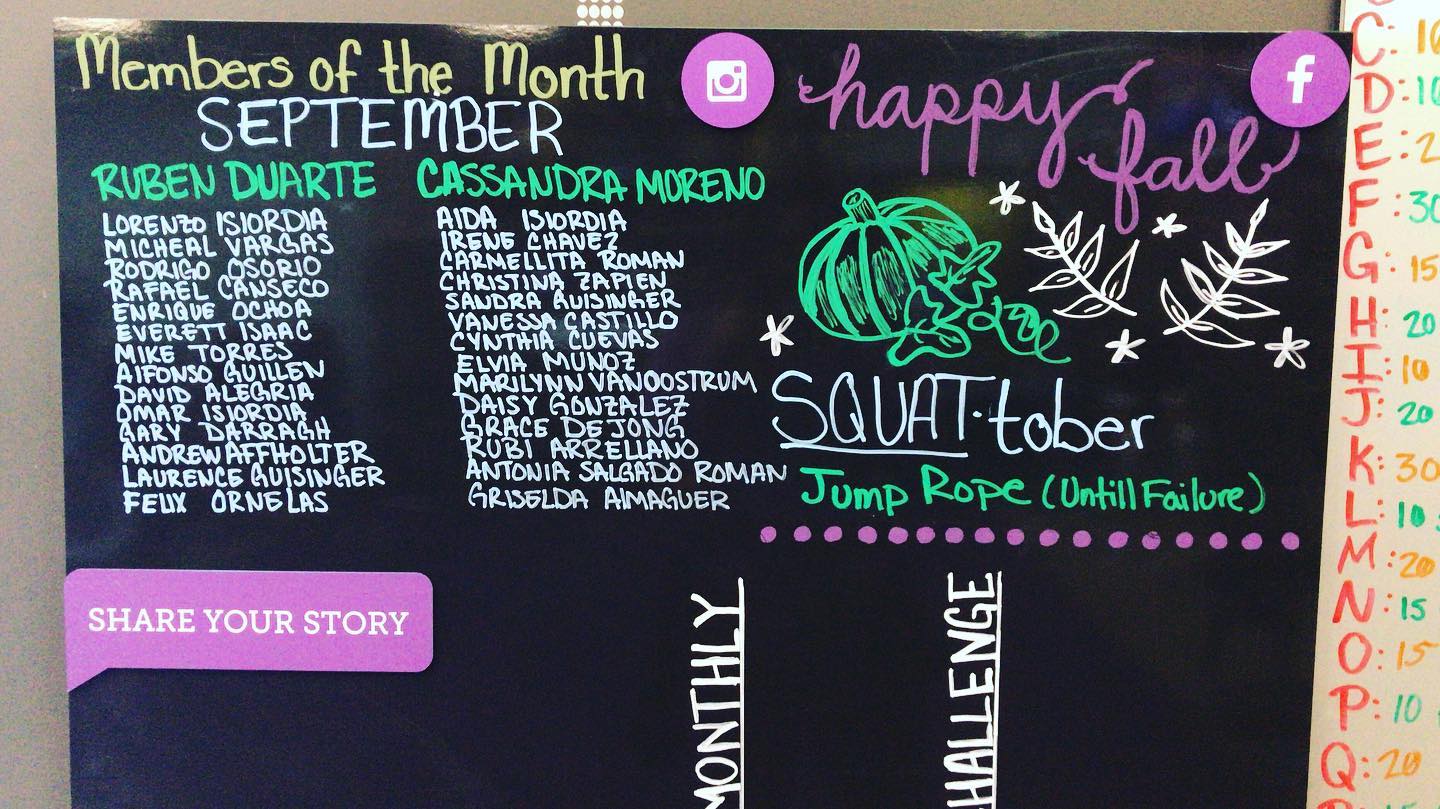 Members of the Month
SEPTEMBER
RUBEN DUARTE
LORENZO ISIORDIA
MICHEAL VARGAS
RODRIGO OSORIO
RAFAEL CANSECO
ENRIQUE OCHOA
EVERETT ISAAC
MIKE TORRES
AlFONSO GUILLEN
DAVID ALEGRIA
OMAR ISIORDIA
GARY DARRAGH
ANDREW AFFHOLTER
LAURENCE GUISINGER
FELIX ORNELAS
CASSANDRA MORENO
AIDA ISIORDIA
IRENE CHAVEZ
CARMELLITA ROMAN
CHRISTINA ZAPIEN
SANDRA GUISINGER
VANESSA CASTILLO
CYNTHIA CUEVAS
ELVIA MUNOZ
MARILYNN VANOOSTRUM
DAISY GONZALEZ
GRACE DE JONG
RUBI ARRELLANO
ANTONIA SALGADO ROMAN
GRISELDA AlMAGUER
happy
fall
f
SQUAT·tober
Jump Rope (Untill Failure)
SHARE YOUR STORY
MONTHLY
HALLENGE
C:
D:
E:
F:
G: 15
H: 20
I: 10
J: 20
K: 30
L: 10
M: 20
N: 15
O: 15
P: 10
Q: 20